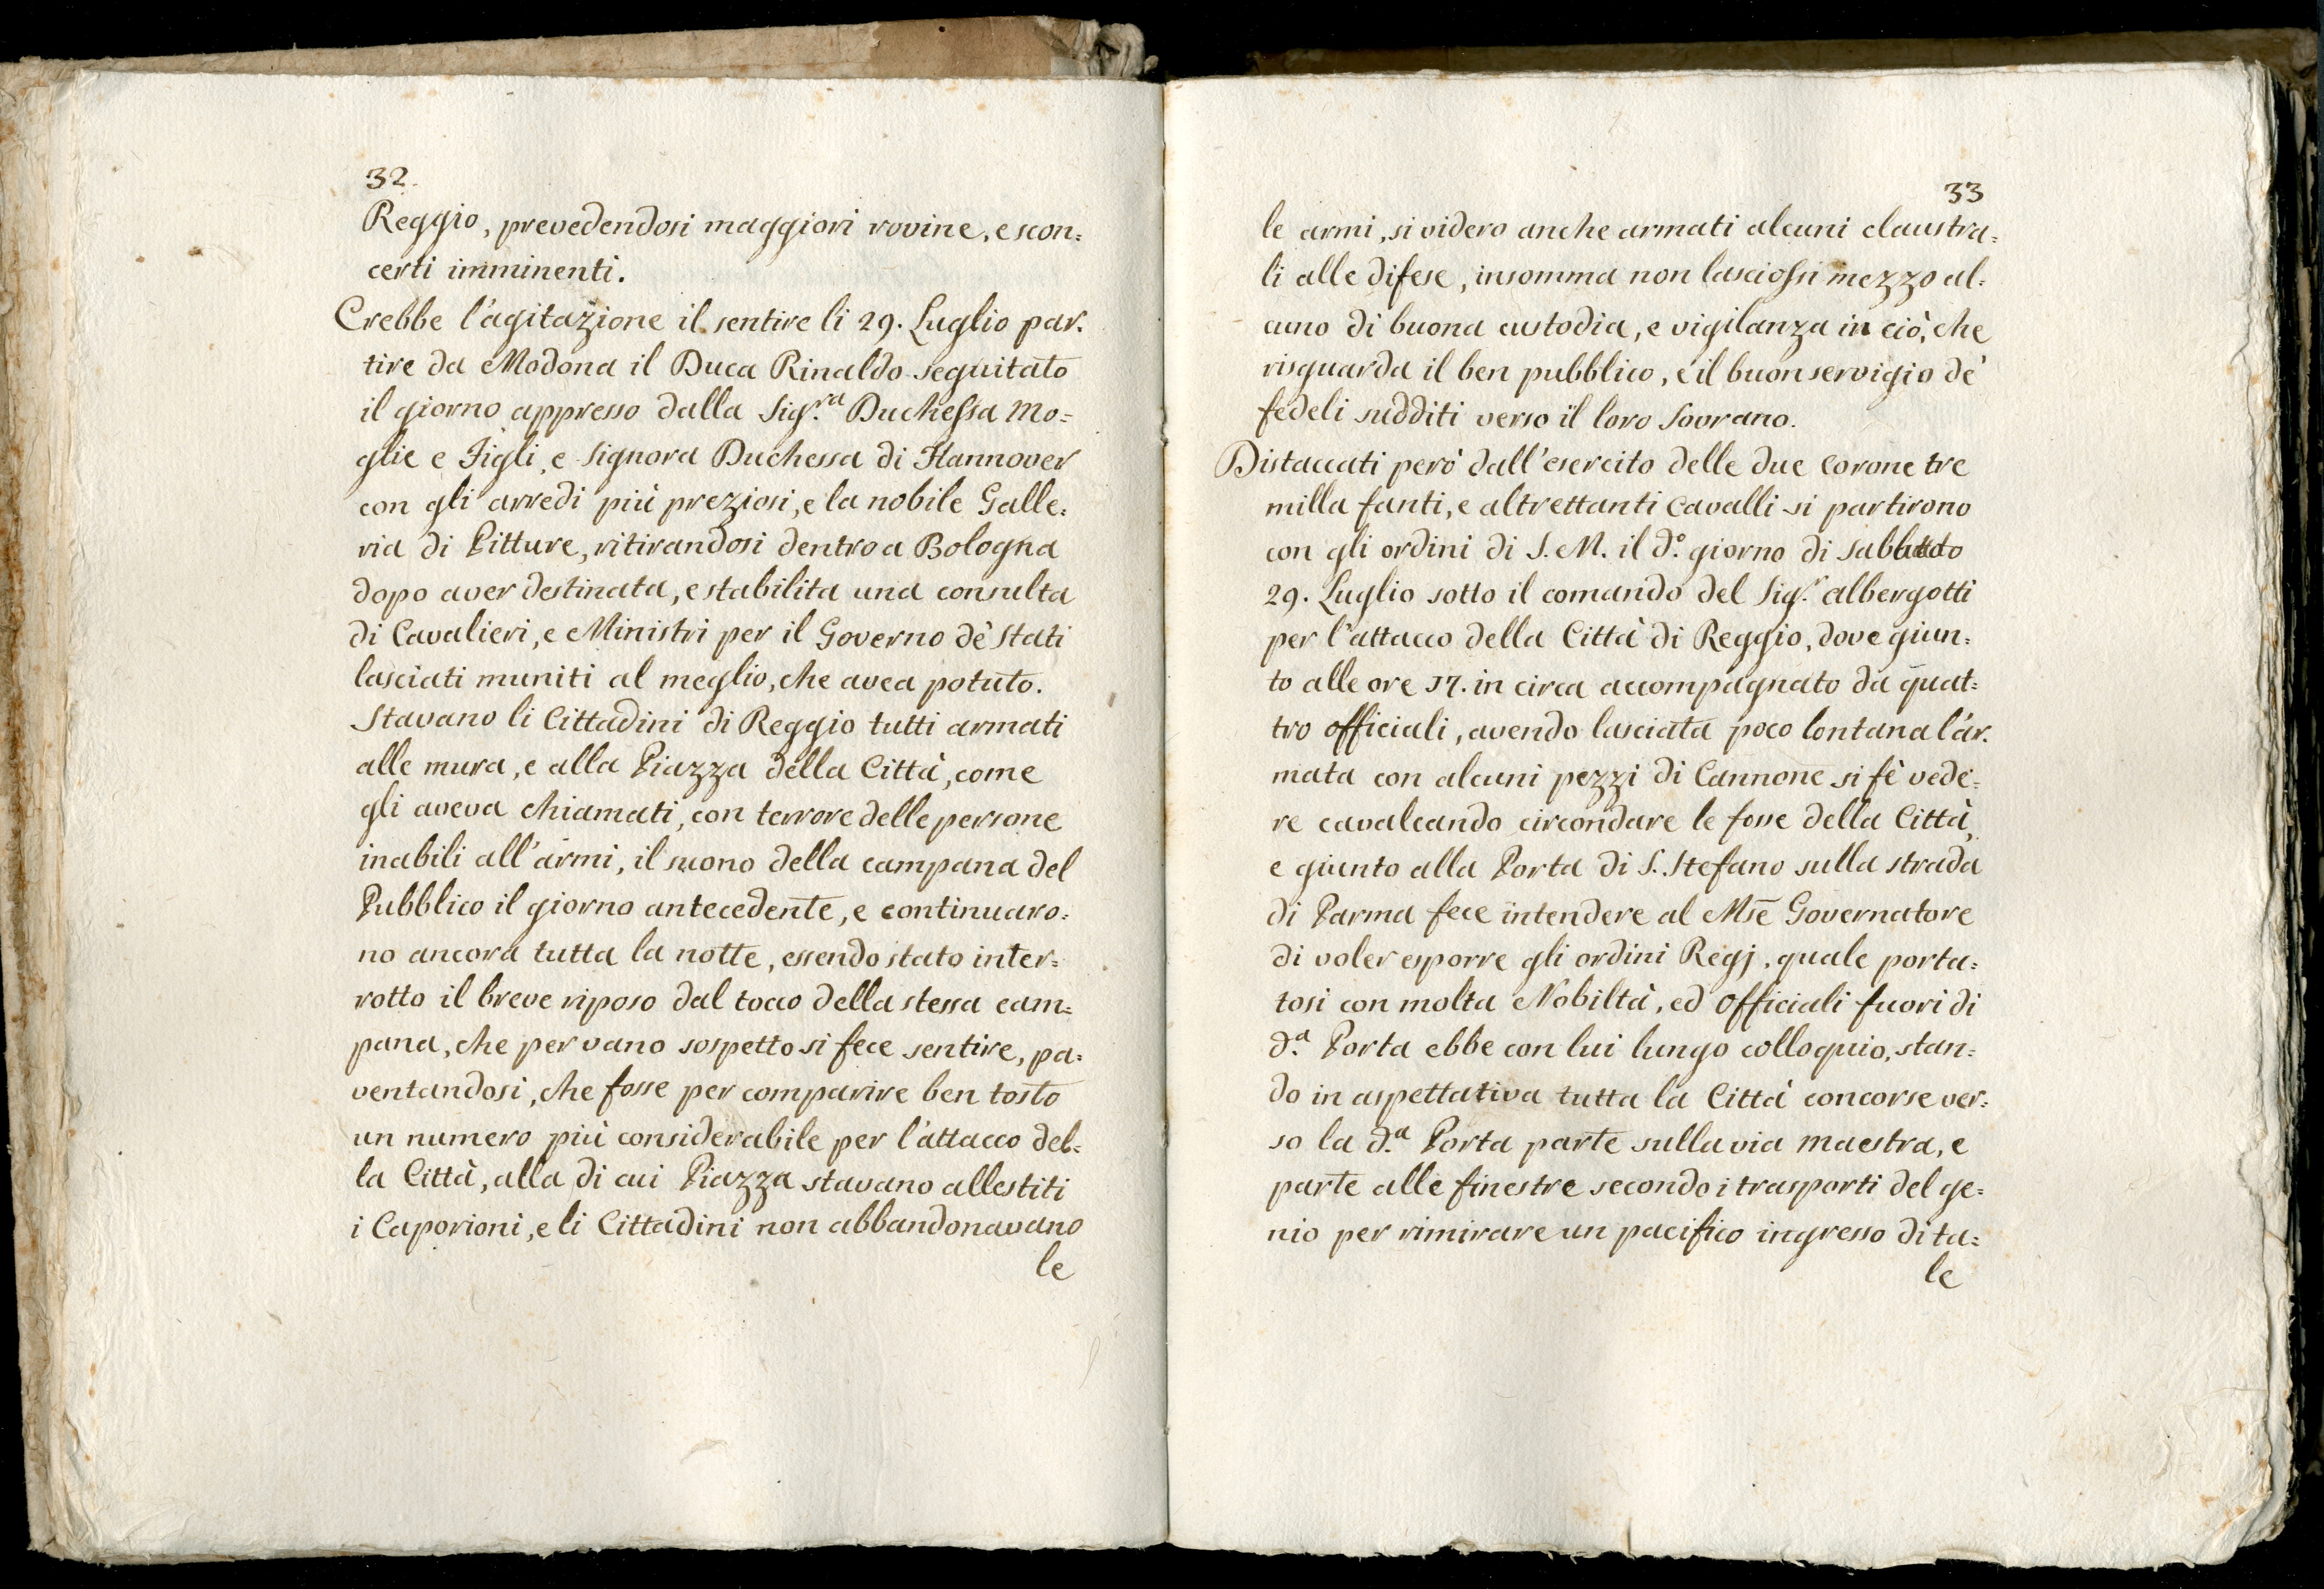 32.
Reggio, prevedendosi maggiori rovine, e scon=
certi imminenti.
Crebbe l'agitazione il sentire li 29. Luglio par=
tire da Modona il Duca Rinaldo seguitato
il giorno appresso dalla Sig.ra Duchessa Mo=
glie e Figli, e Signora Duchessa di Hannover
con gli arredi più preziosi, e la nobile Galle=
ria di Pitture, ritirandosi dentro a Bologna
dopo aver destinata, e stabilita una consulta
di Cavalieri, e Ministri per il Governo de' Stati
lasciati muniti al meglio, che avea potuto.
Stavano li Cittadini di Reggio tutti armati
alle mura, e alla Piazza della Città, come
gli aveva chiamati, con terrore delle persone
inabili all'armi, il suono della campana del
Pubblico il giorno antecedente, e continuaro=
no ancora tutta la notte, essendo stato inter=
rotto il breve riposo dal tocco della stessa cam=
pana, che per vano sospetto si fece sentire, pa=
ventandosi, che fosse per comparire ben tosto
un numero più considerabile per l'attacco del=
la Città, alla di cui Piazza stavano allestiti
i Caporioni, e li Cittadini non abbandonavano
le
33
le armi, si videro anche armati alcuni claustra=
li alle difese, insomma non lasciossi mezzo al=
cuno di buona custodia, e vigilanza in ciò, che
risguarda il ben pubblico, e il buon servigio de'
fedeli sudditi verso il loro Sovrano.
Distaccati però dall'esercito delle due Corone tre
milla fanti, e altrettanti Cavalli si partirono
con gli ordini di S. M. il d.o giorno di Sabbato
29. Luglio sotto il comando del Sig.r Albergotti
per l'attacco della Città di Reggio, dove giun=
to alle ore 17. in circa accompagnato da quat=
tro officiali, avendo lasciata poco lontana l'ar=
mata con alcuni pezzi di Cannone si fè vede=
re cavalcando circondare le fosse della Città,
e giunto alla Porta di S. Stefano sulla strada
di Parma fece intendere al Mse Governatore
di voler esporre gli ordini Regj, quale porta=
tosi con molta Nobiltà, ed Officiali fuori di
d.a Porta ebbe con lui lungo colloquio, stan=
do in aspettativa tutta la Città concorse ver=
so la d.a Porta parte sulla via maestra, e
parte alle finestre secondo i trasporti del ge=
nio per rimirare un pacifico ingresso di ta=
le